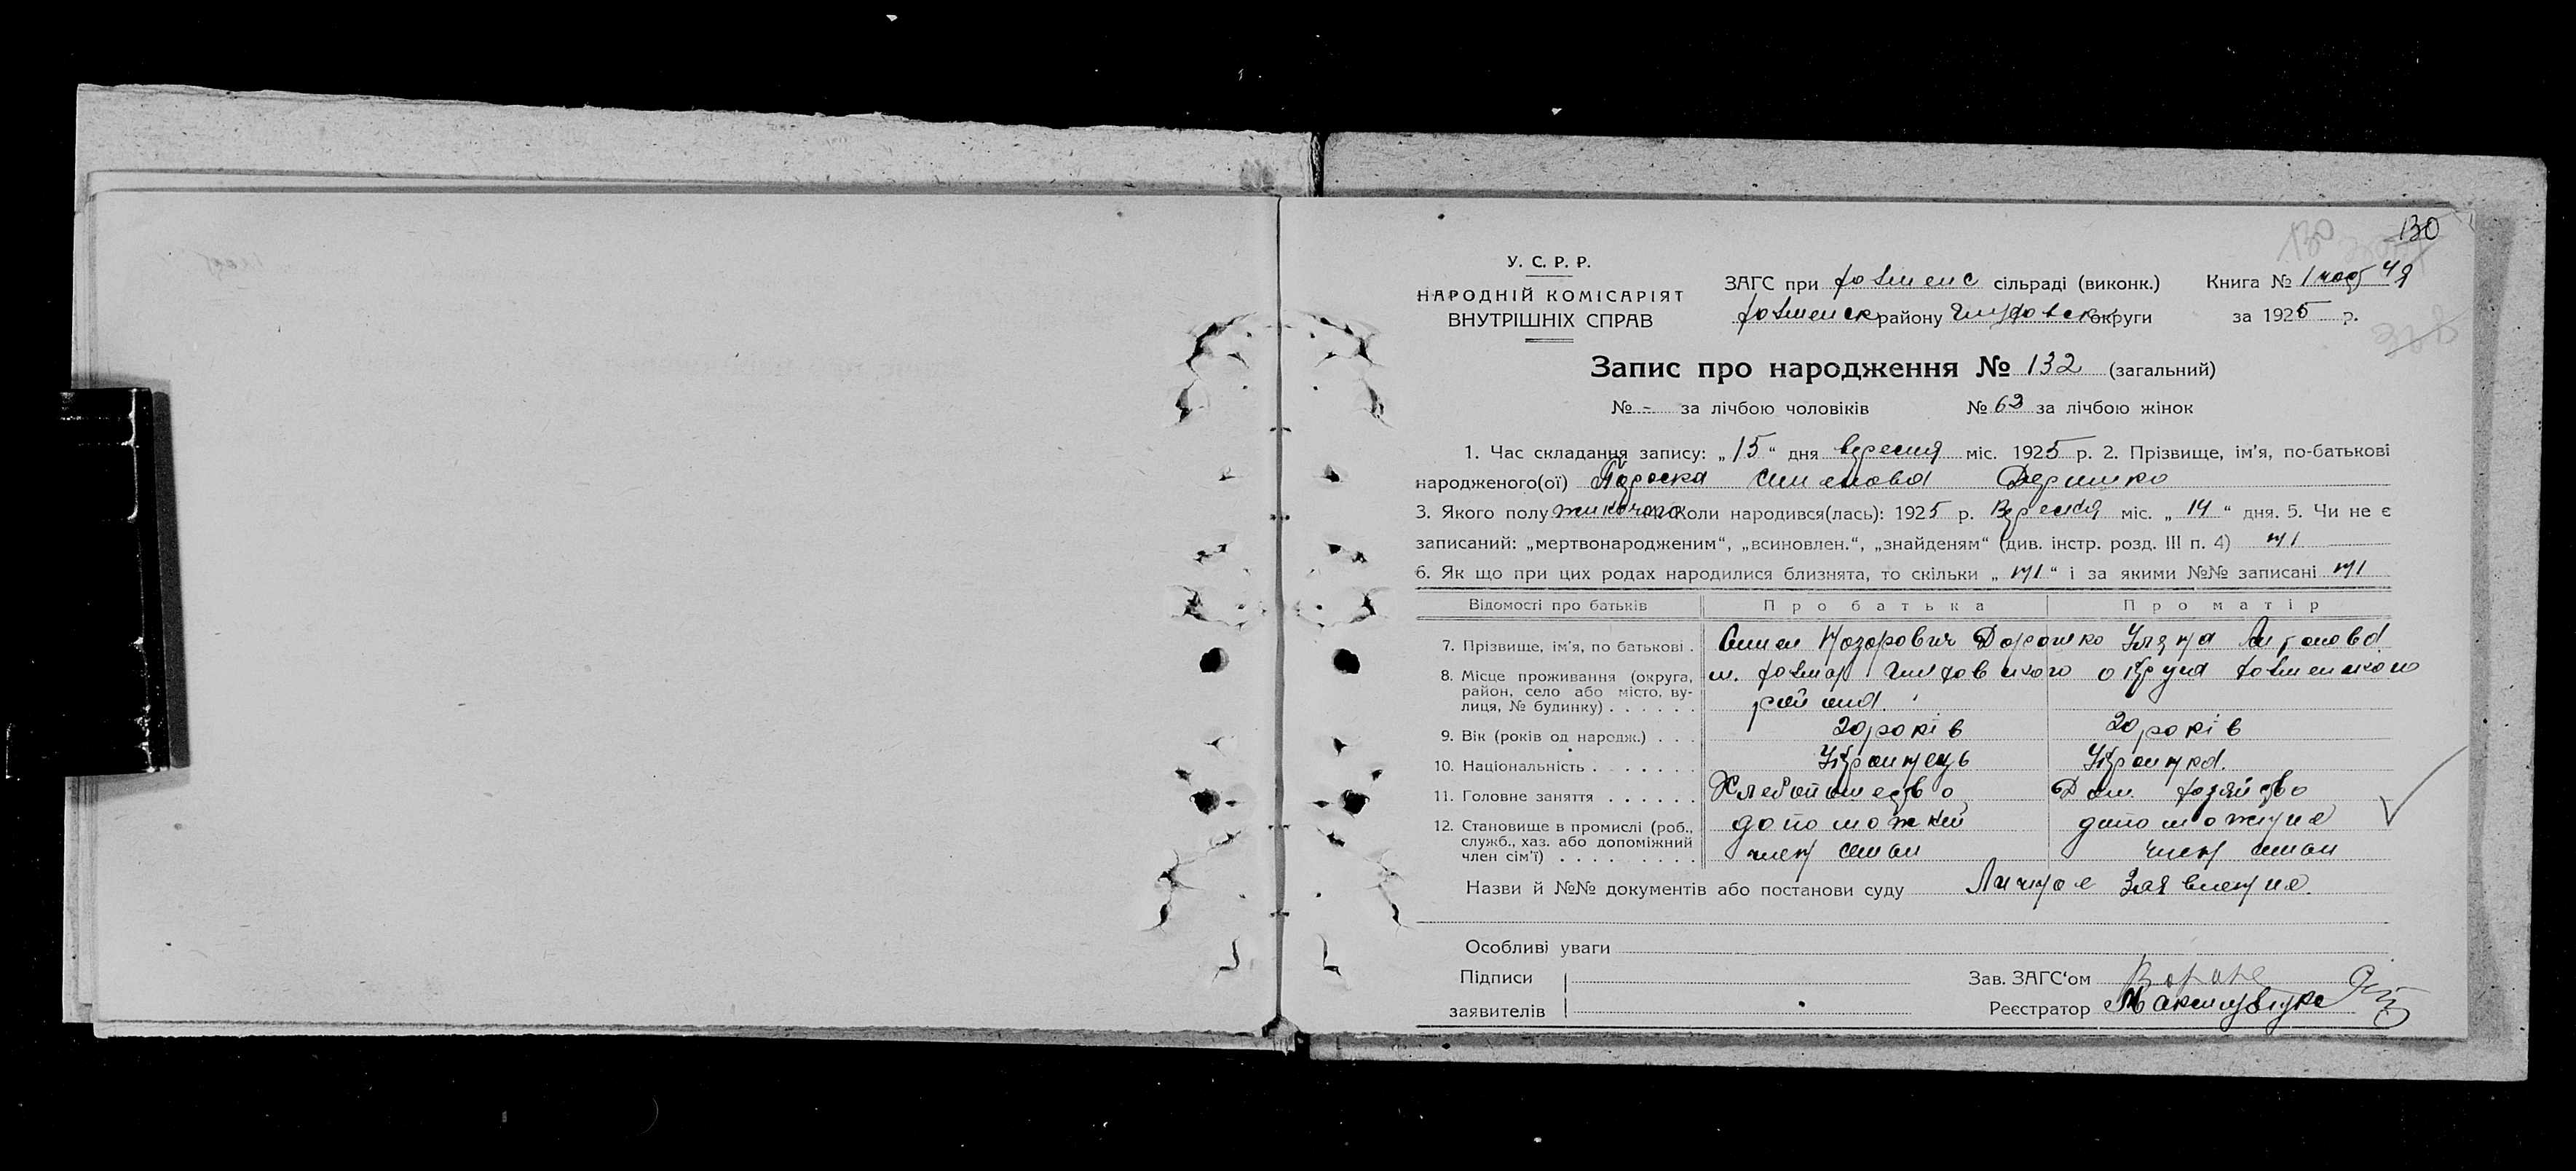 130
У. С. Р. Р.
НАРОДНІЙ КОМІСАРІЯТ
ВНУТРІШНІХ СПРАВ
ЗАГС при сільраді (виконк.)
району округи
Книга № 1
за 1925 р.
Запис про народження № 132 (загальний)
№ - за лічбою чоловіків № 63 за лічбою жінок
1. Час складання запису: „ 15 “ дня вересня міс. 1925 р. 2. Прізвище, ім'я, по-батькові
народженого(ої) Параска Дорошко
3. Якого полу жиночого 4. Коли народився(лась): 1925 р. Вересня міс. „ 14 “ дня. 5. Чи не є
записаний: „мертвонародженим“, „всиновлен.“, „знайденям“ (див. інстр. розд. III п. 4) ні
6. Як що при цих родах народилися близнята, то скільки „ ні “ і за якими №№ записані ні
Відомості про батьків Про батька Про матір
7. Прізвище, ім'я, по батькові . Назарович Дорошко Уляна
8. Місце проживання (округа, район, село або місто, вулиця, № будинку) . . . . . . района.
9. Вік (років од народж.) . . . 20 років 20 років
10. Національність . . . . . . . Українець Українка
11. Головне заняття . . . . . . Хлебопашество Дом. хозяйство
12. Становище в промислі (роб., служб., хаз. або допоміжний член сім'ї) . . . . . . . . . член член
Назви й №№ документів або постанови суду Личное Заявление.
Особливі уваги
Підписи
заявителів
Зав. ЗАГС'ом
Реєстратор